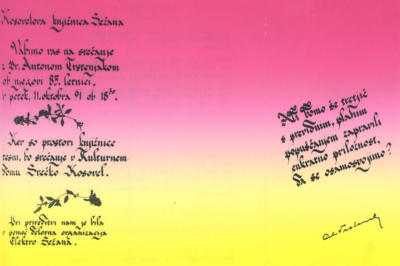 Kosovelova knjižnica Sežana
Vabimo vas na srečanje
z Dr. Antonom Trstenjakom
ob njegovi 85. letnici,
v petek, 11. oktobra 91 ob 18³⁰.
Ker so prostori knjižnice
tesni, bo srečanje v Kulturnem
domu Srečko Kosovel.
Pri prireditvi nam je bila
v pomoč delovna organizacija
Elektro Sežana.
Ali bomo še tretjič
s previdnim, plašnim
popuščanjem zapravili
enkratno priložnost,
da se osamosvojimo?